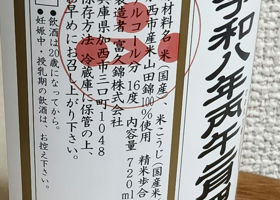 令和八年丙午二月
原材料名 米(国産)、米こうじ(国産米)
西市産米山田錦100%使用 精米歩合
アルコール分 16度 内容量 720ml
製造者 富久錦株式会社
兵庫県加西市三口町1048
保存方法 冷蔵庫に保管の上、
お早めにお召し上がり下さい。
・飲酒は20歳になってから。
・妊娠中・授乳期の飲酒は、お控え下さい。